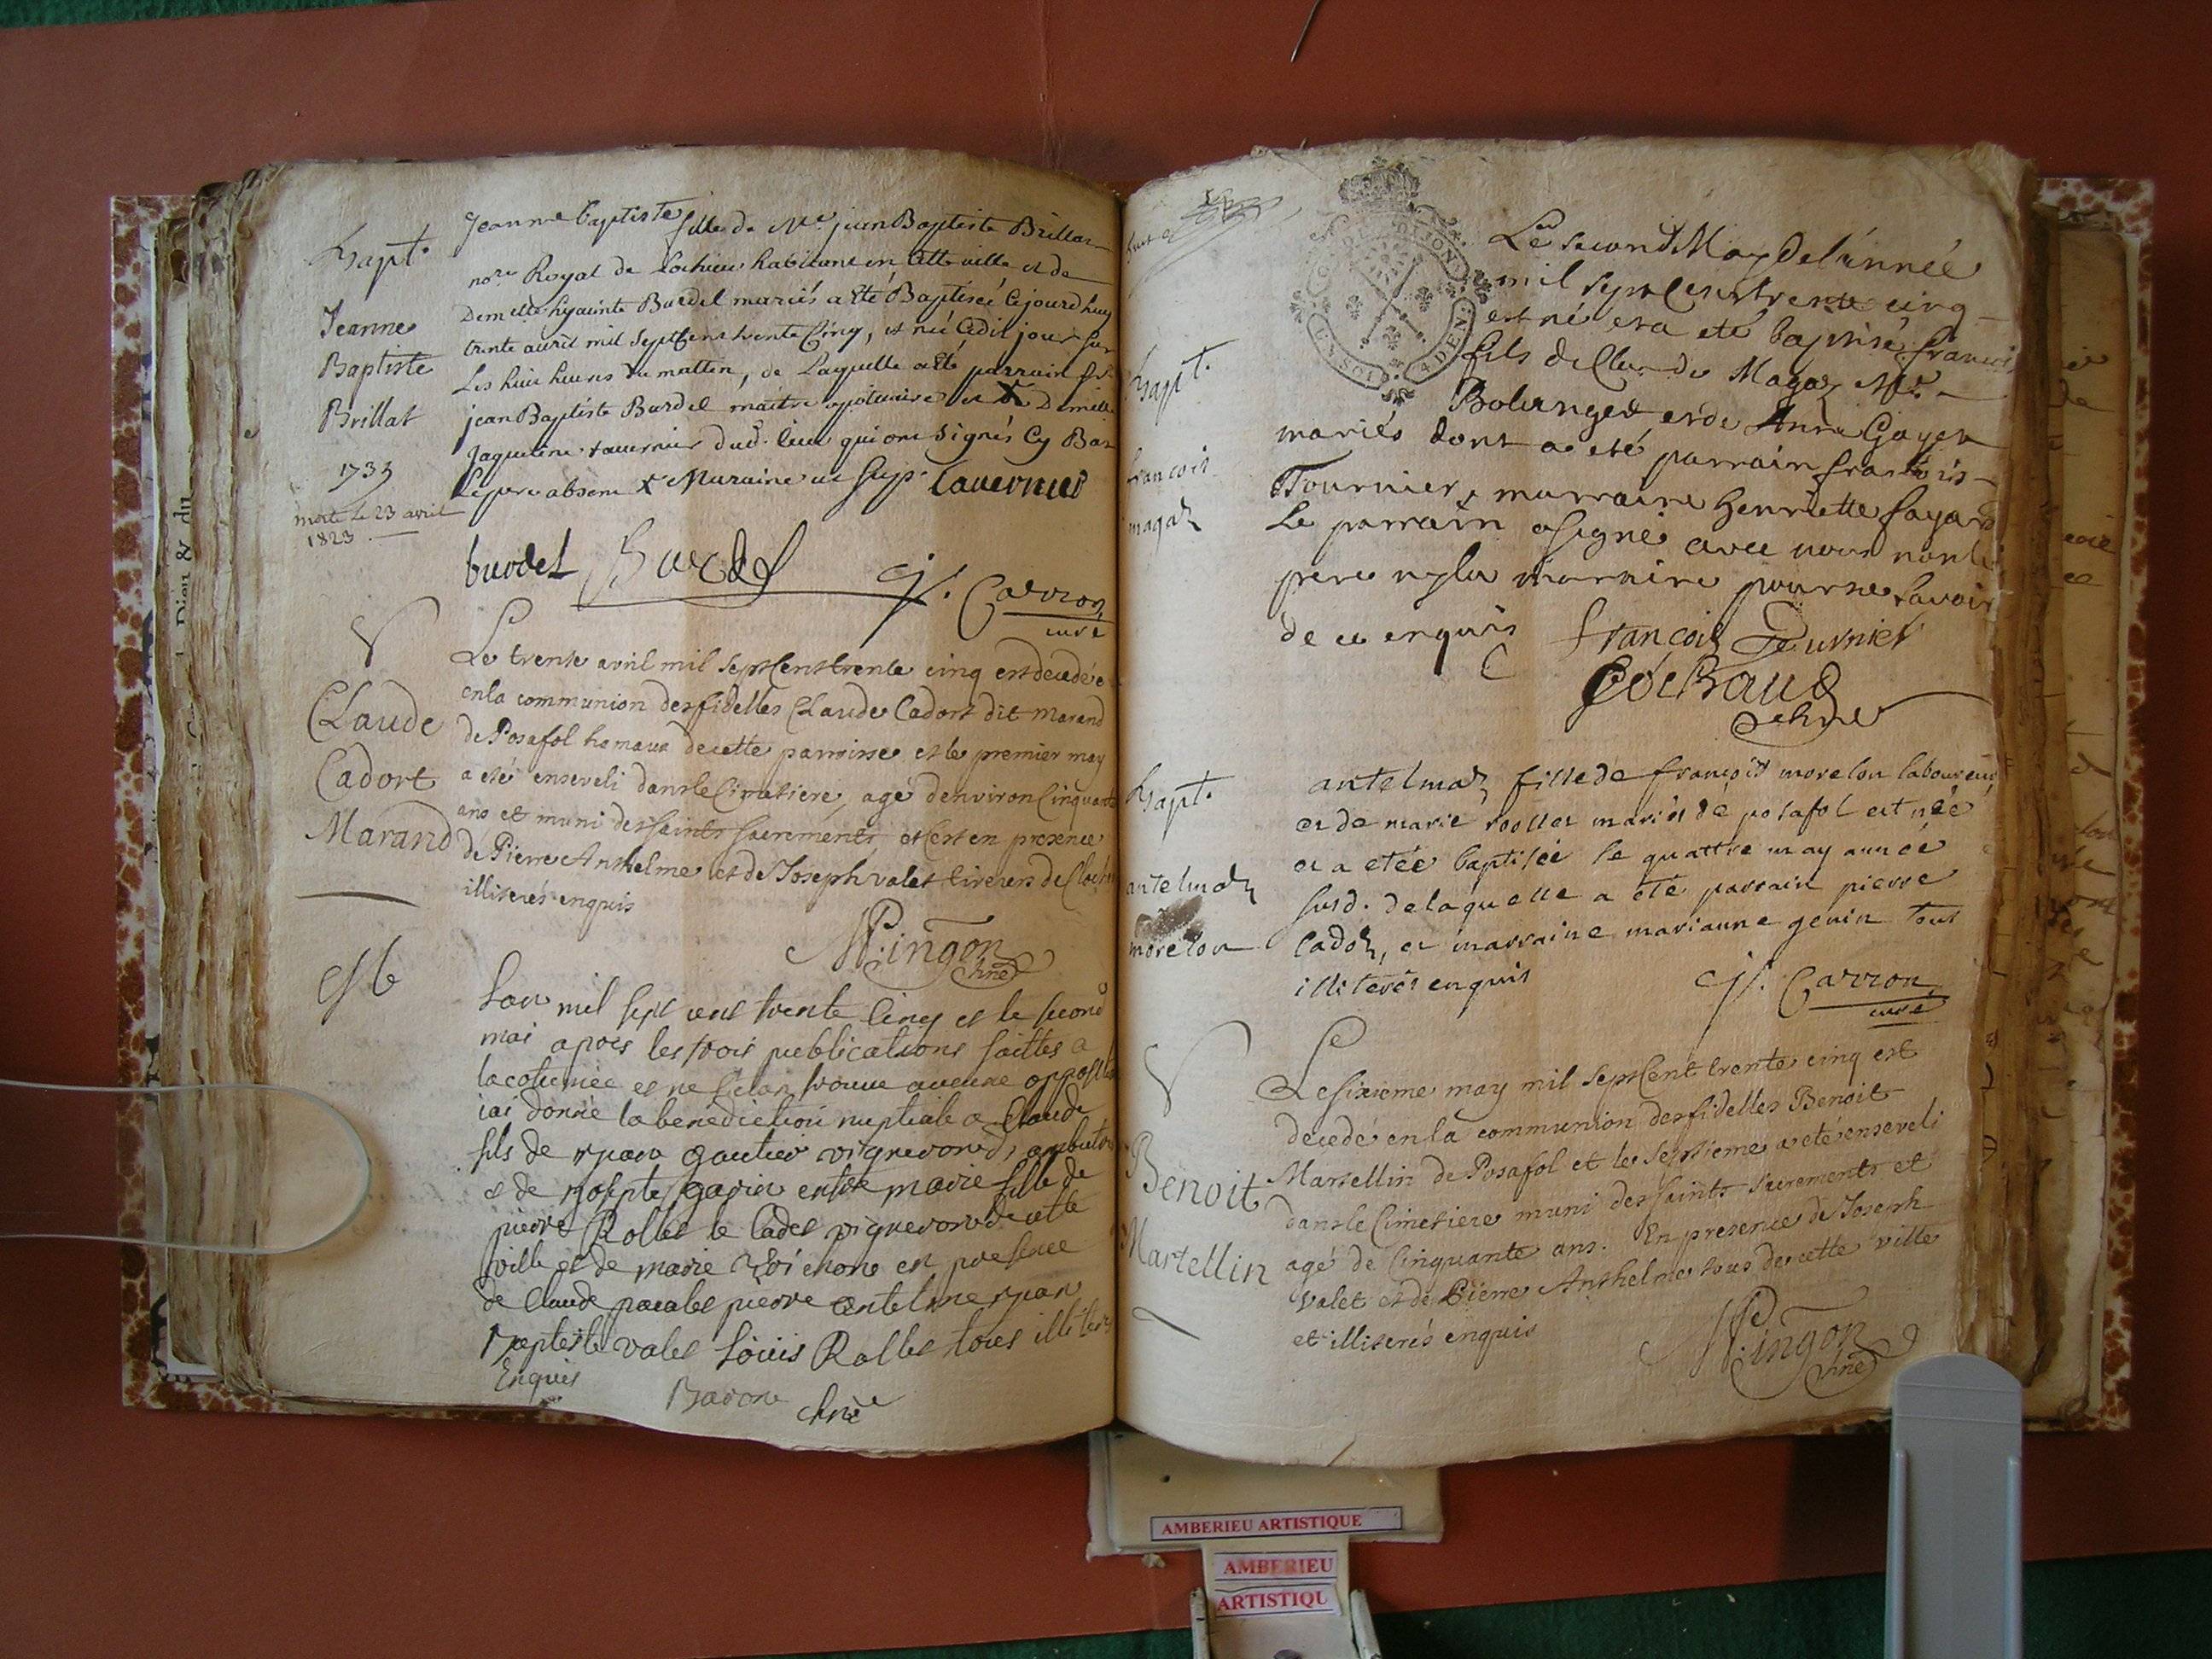 Bapt.
Jeanne
Baptiste
Brillat
1735
morte le 23 avril
1823
Jeanne baptiste fille de Me. jean Baptiste Brillat
nore. Royal de Lochieu habitant en cette ville et de
Demelle hyainte Burdel mariés a eté Baptiseé cejourdhuy
trente avril mil septcent trente Cinq, et neé cedit jour sur
les huit heures du mattin, de Laquelle a eté parrain sr.
jean Baptiste Burdel maitre apoticaire et Demelle
Jaqueline tavernier dud. lieu qui ont signés Cy Bas
Le pere absent x Maraine ut sup. tavernier
burdel Burdel
J. Carron
curé
Claude
Cadort
Marand
Le trente avril mil septcent trente cinq est decedé
en la communion des fidelles Claude Cadort dit Marand
de Posafol hameau de cette parroisse et le premier may
a eté enseveli dans le Cimetiere, agé denviron Cinquante
ans et muni des saints sacrements et c'est en presence
de Pierre Anthelme et de Joseph valet
illiterés enquis
Mingon
chne
Lan mil sept cent trente Cinq et le second
mai apres les trois publications faittes a
la coutumee et ne s'etan trouve aucune
iai donné la benediction nuptiale a Claude
fils de gautier vigneron
et de marie fille de
pierre Rollet le Cadet vigneron de cette
ville et de marie en presence
de Claude pierre antelme
Baptiste valet Loüis Rollet tous illiteres
Enquis
Baron chne
Bapt.
francois
magaz
Le second May de l'année
mil sept cent trente cinq
est né et a eté baptisé francois
fils de Claude Magaz Me.
Boulanger et de Anne Goyet
mariés dont a eté parrain francois
Tournier, marraine henriette fayard
Le parrain a signé avec nous non le
pere ny la marraine pour ne scavoir
de ce enquis
francois Tournier
Cochaud
chne
Bapt.
antelmaz
morelon
antelmaz fille de françois morelon laboureur
et de marie rollet mariés de posafol est née
et a etée baptisée le quattre may année
susd. de laquelle a eté parrain pierre
Cadoz, et marraine marianne genin tous
illiterés enquis
J. Carron
curé
Benoit
Martellin
Le sixieme may mil sept Cent trente cinq est
decedé en la communion des fidelles Benoit
Martellin de Posafol et le septieme a eté enseveli
dans le Cimetiere muni des saints sacrements et
agé de Cinquante ans. En presence de Joseph
valet et de Pierre Anthelme tous de cette ville
et illiterés enquis
Mingon
chne
AMBERIEU ARTISTIQUE
AMBERIEU
ARTISTIQU